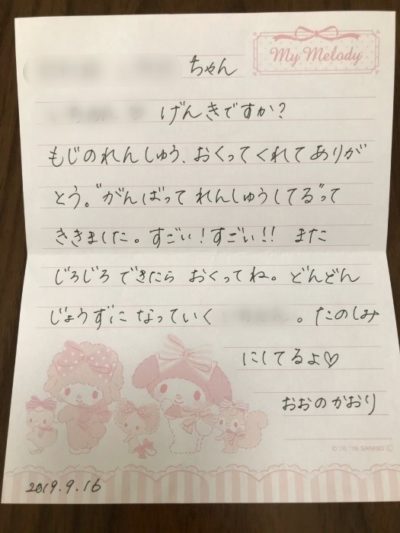 ちゃん
My Melody
げんきですか?
もじのれんしゅう、おくってくれてありが
とう。"がんばって れんしゅうしてる"って
ききました。すごい!すごい!! また
じろじろ できたら おくってね。どんどん
じょうずに なっていく 。たのしみ
にしてるよ♡
おおのかおり
2019.9.16